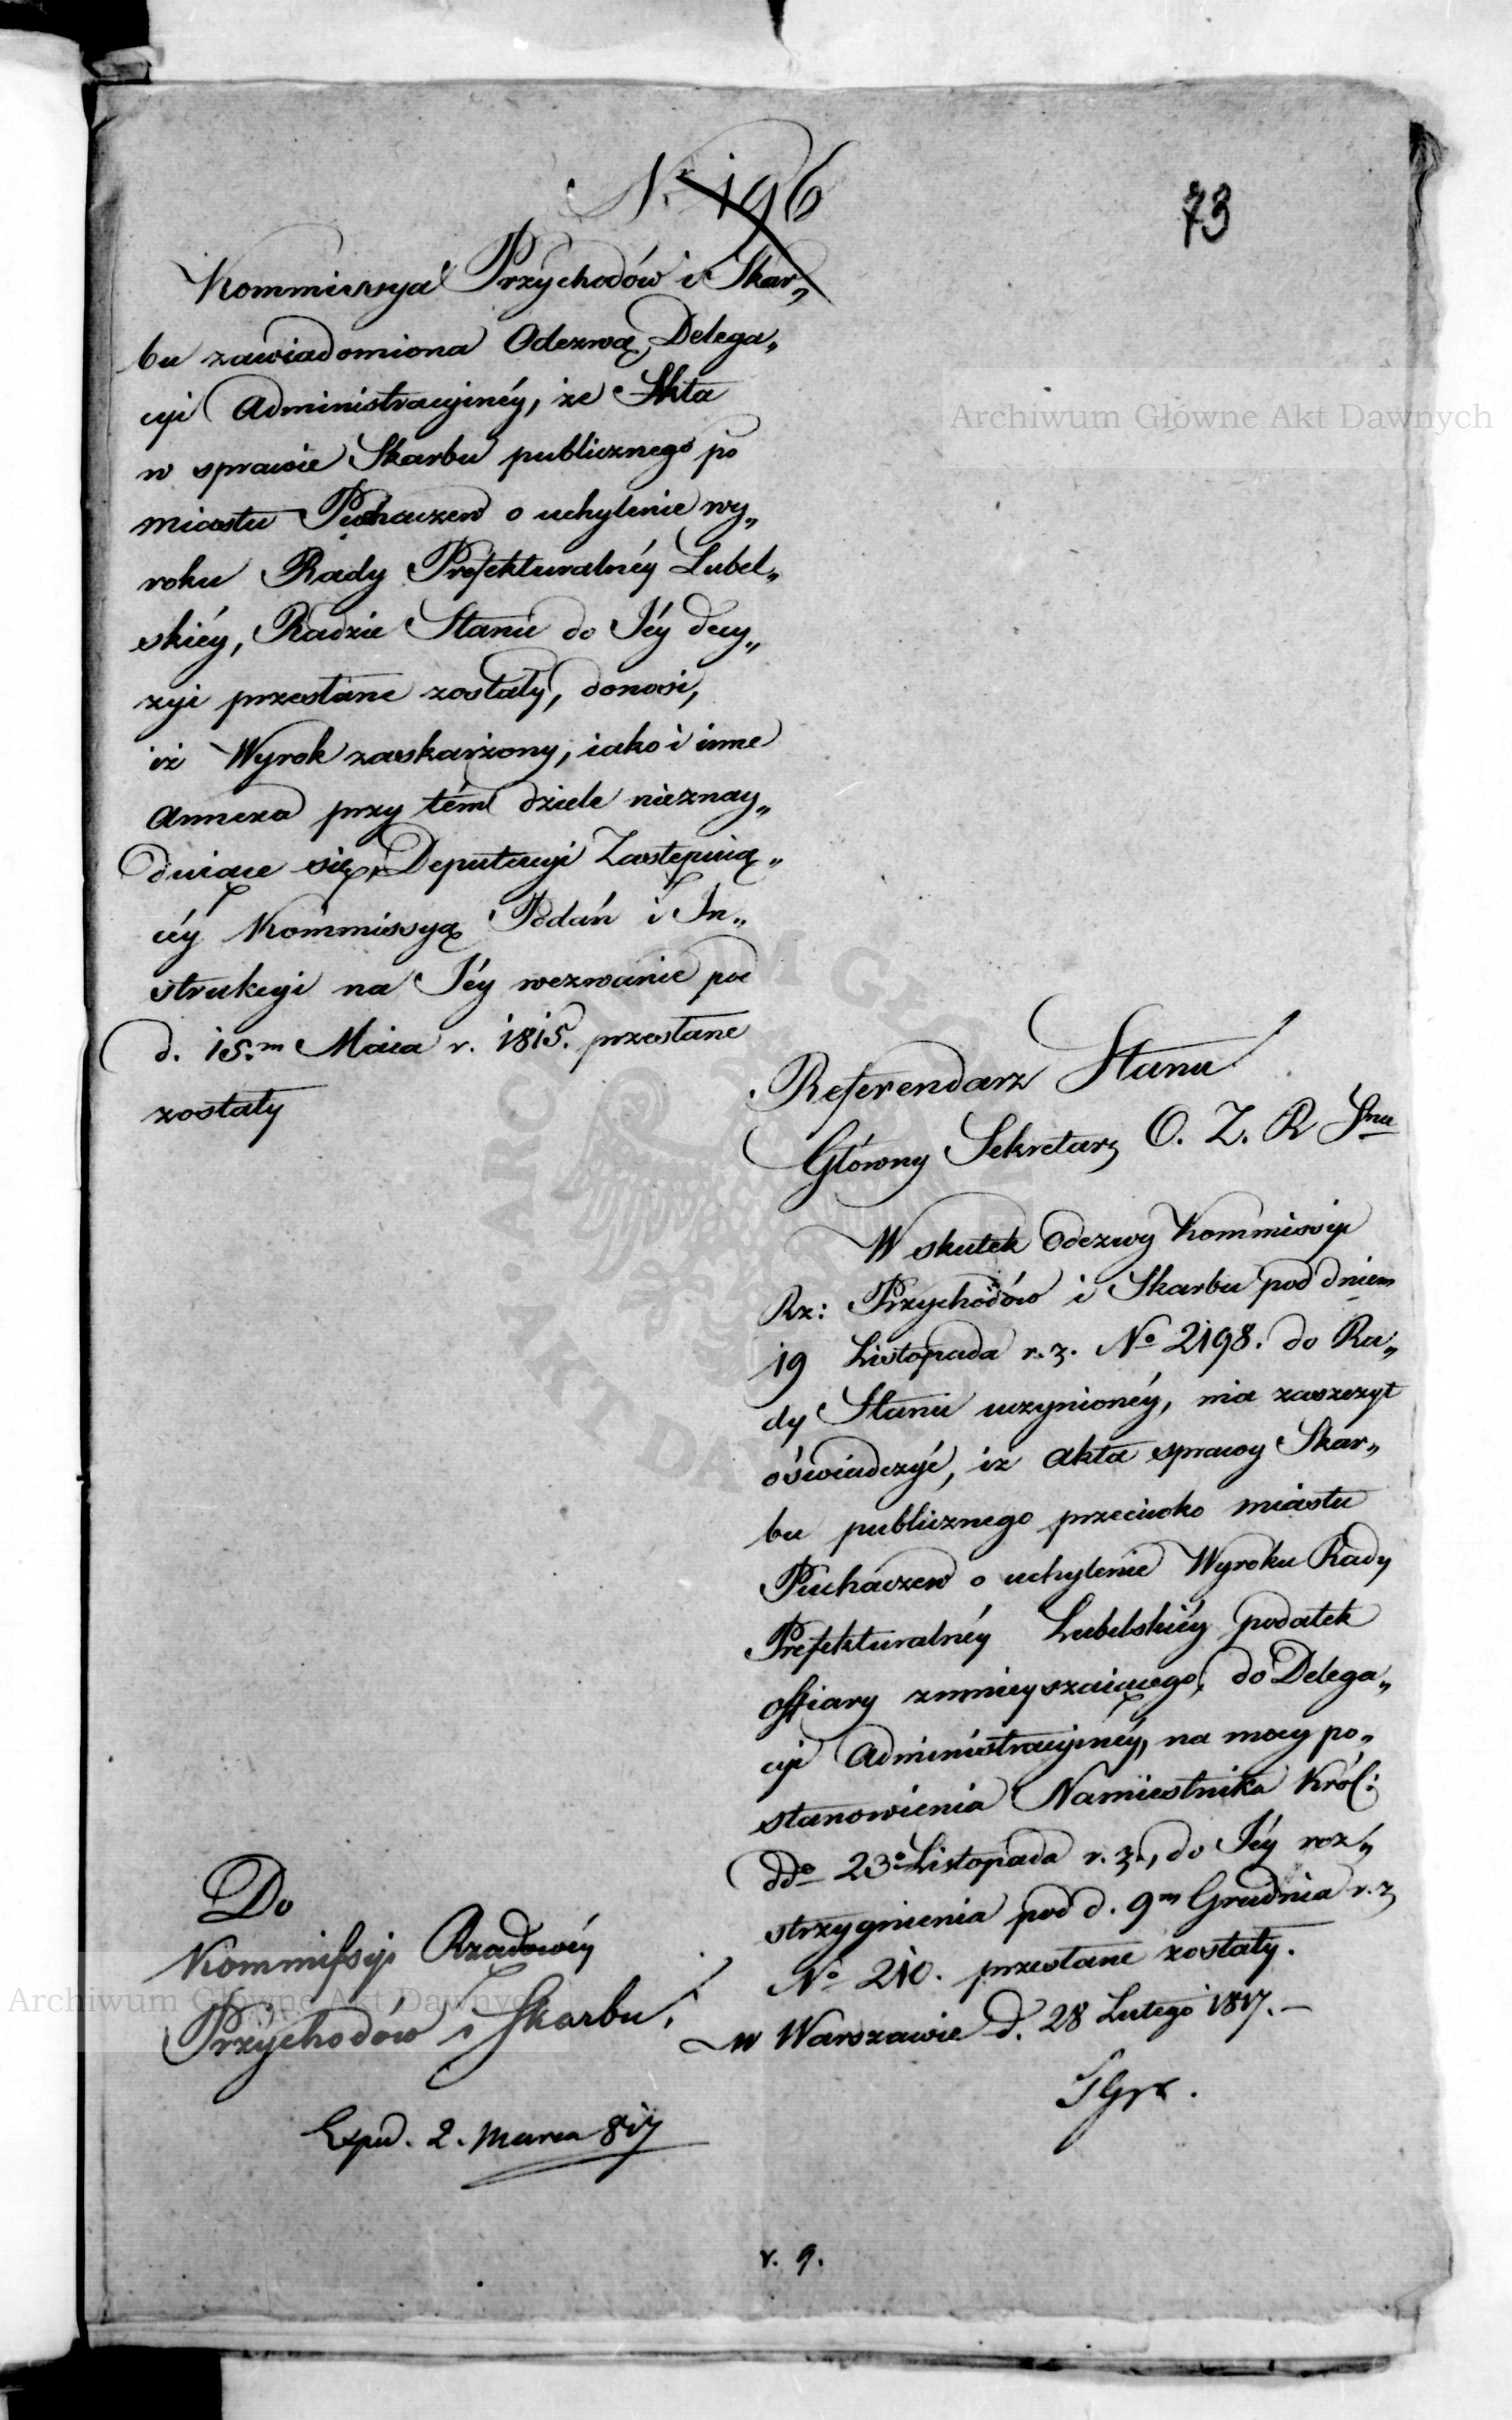 Nr 196
73
Kommissya Przychodów i Skar„
bu zawiadomiona Odezwą Delega„
cyi Administracyinéy, że Akta
w sprawie Skarbu publicznego po
miastu Puchaczew o uchylenie wy„
roku Rady Prefekturalnéy Lubel„
skiéy, Radzie Stanu do Jéy decy„
zyi przesłane zostały, donosi,
iż Wyrok zaskarżony, iako i inne
annexa przy tém dziele nieznay„
duiące się, Deputacyi Zastępuią„
céy Kommissyą Podań i In„
strukcyi na Jéy wezwanie pod
d. 15.m Maia r. 1815. przesłane
zostały
Referendarz Stanu
Główny Sekretarz O. Z. R Snu
W skutek Odezwy Kommissyi
Rz: Przychodów i Skarbu pod dniem
19 Listopada r. z. No 2198. do Ra„
dy Stanu uczynionéy, ma zaszczyt
oświadczyć, iż akta sprawy Skar„
bu publicznego przeciwko miastu
Puchaczew o uchylenie Wyroku Rady
Prefekturalnéy Lubelskiéy podatek
offiary zmnieyszaiącego, do Delega„
cyi Administracyinéy, na mocy po„
stanowienia Namiestnika Król:
ddo 23o Listopada r. z., do Jéy roz„
strzygnienia pod d. 9m Grudnia r. z
No 210. przesłane zostały.
w Warszawie d. 28 Lutego 1817. –
Do
Kommissyi Rządowéy
Przychodów i Skarbu.
Expd. 2. Marca 817
r. 9.
Archiwum Główne Akt Dawnych
Archiwum Główne Akt Dawnych
ARCHIWUM GŁÓWNE AKT DAWNYCH